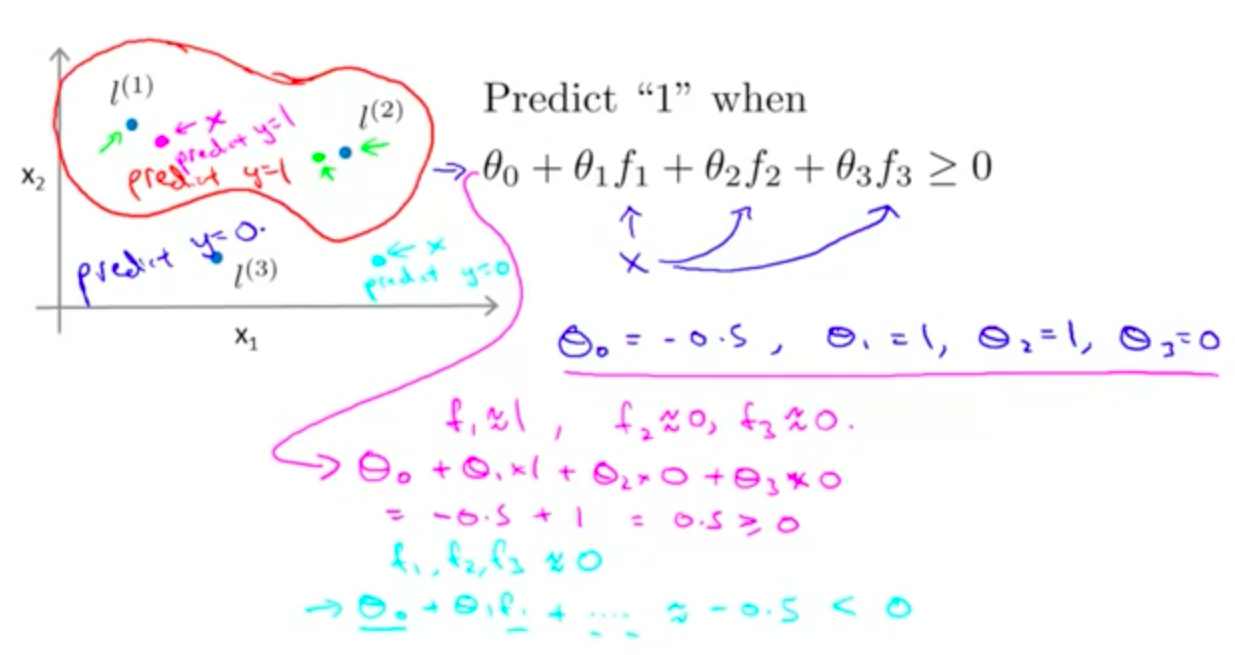 l^(1)
← x
predict y=1
l^(2)
predict y=1
x₂
predict y=0.
l^(3)
← x
predict y=0
x₁
Predict “1” when
→ θ₀ + θ₁f₁ + θ₂f₂ + θ₃f₃ ≥ 0
x
θ₀ = -0.5 , θ₁ = 1, θ₂ = 1, θ₃ = 0
f₁ ≈ 1 , f₂ ≈ 0, f₃ ≈ 0.
→ θ₀ + θ₁ × 1 + θ₂ × 0 + θ₃ × 0
= -0.5 + 1 = 0.5 ≥ 0
f₁, f₂, f₃ ≈ 0
→ θ₀ + θ₁f₁ + .... ≈ -0.5 < 0